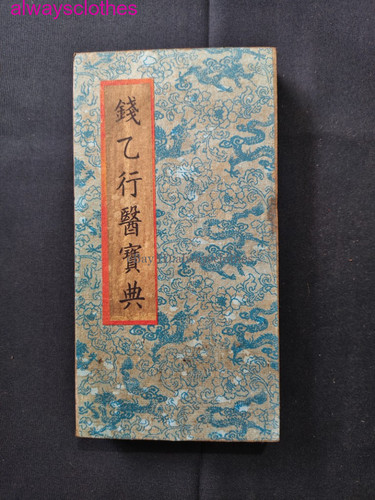 alwaysclothes
錢乙行醫寶典